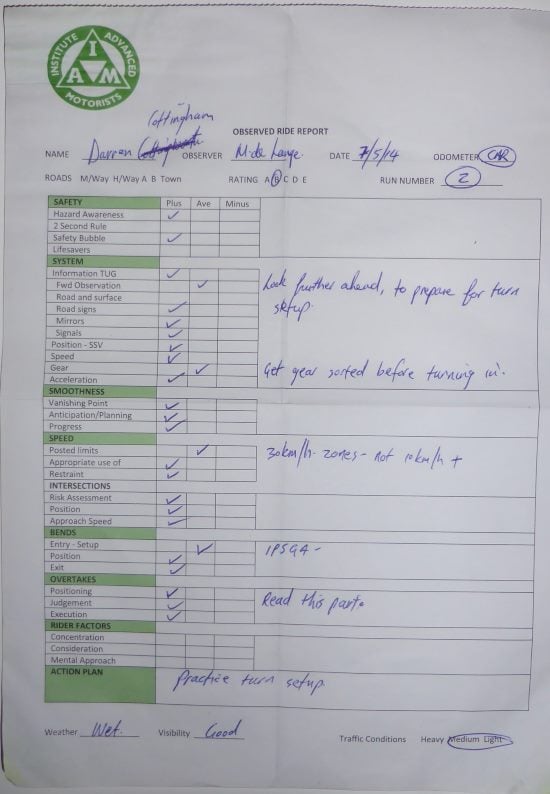 INSTITUTE ADVANCED MOTORISTS
I A M
Cottingham
OBSERVED RIDE REPORT
NAME Darren OBSERVER M. de Lange. DATE 7/5/14 ODOMETER CAR
ROADS M/Way H/Way A B Town RATING A B C D E RUN NUMBER 2
SAFETY Plus Ave Minus
Hazard Awareness ✓
2 Second Rule
Safety Bubble ✓
Lifesavers
SYSTEM
Information TUG ✓
Fwd Observation ✓ Look further ahead, to prepare for turn
Road and surface setup.
Road signs ✓
Mirrors ✓
Signals ✓
Position - SSV ✓
Speed ✓
Gear ✓ Get gear sorted before turning in.
Acceleration ✓
SMOOTHNESS
Vanishing Point ✓
Anticipation/Planning ✓
Progress ✓
SPEED
Posted limits ✓ 30km/h zones - not 10km/h +
Appropriate use of ✓
Restraint ✓
INTERSECTIONS
Risk Assessment ✓
Position ✓
Approach Speed ✓
BENDS
Entry - Setup ✓ IPSGA -
Position ✓
Exit ✓
OVERTAKES
Positioning ✓
Judgement ✓ Read this part.
Execution ✓
RIDER FACTORS
Concentration
Consideration
Mental Approach
ACTION PLAN Practice turn setup
Weather Wet. Visibility Good Traffic Conditions Heavy Medium Light